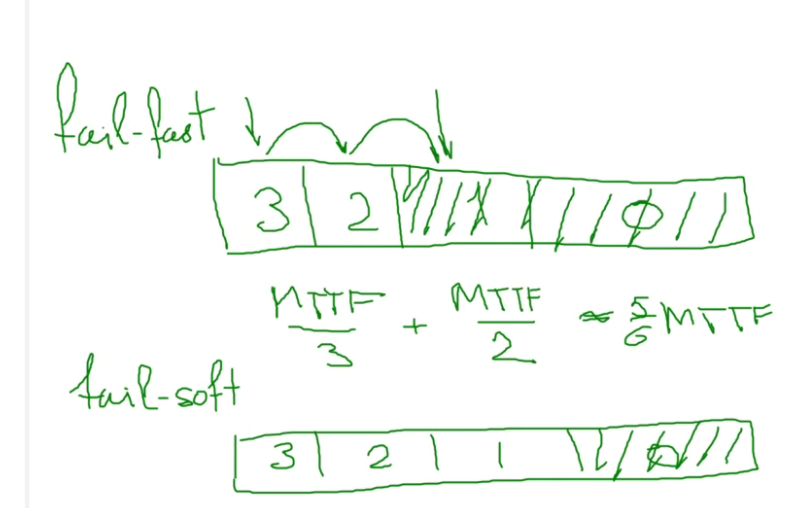 fail-fast
3 2 0
MTTF/3 + MTTF/2 ≈ 5/6 MTTF
fail-soft
3 2 1 0